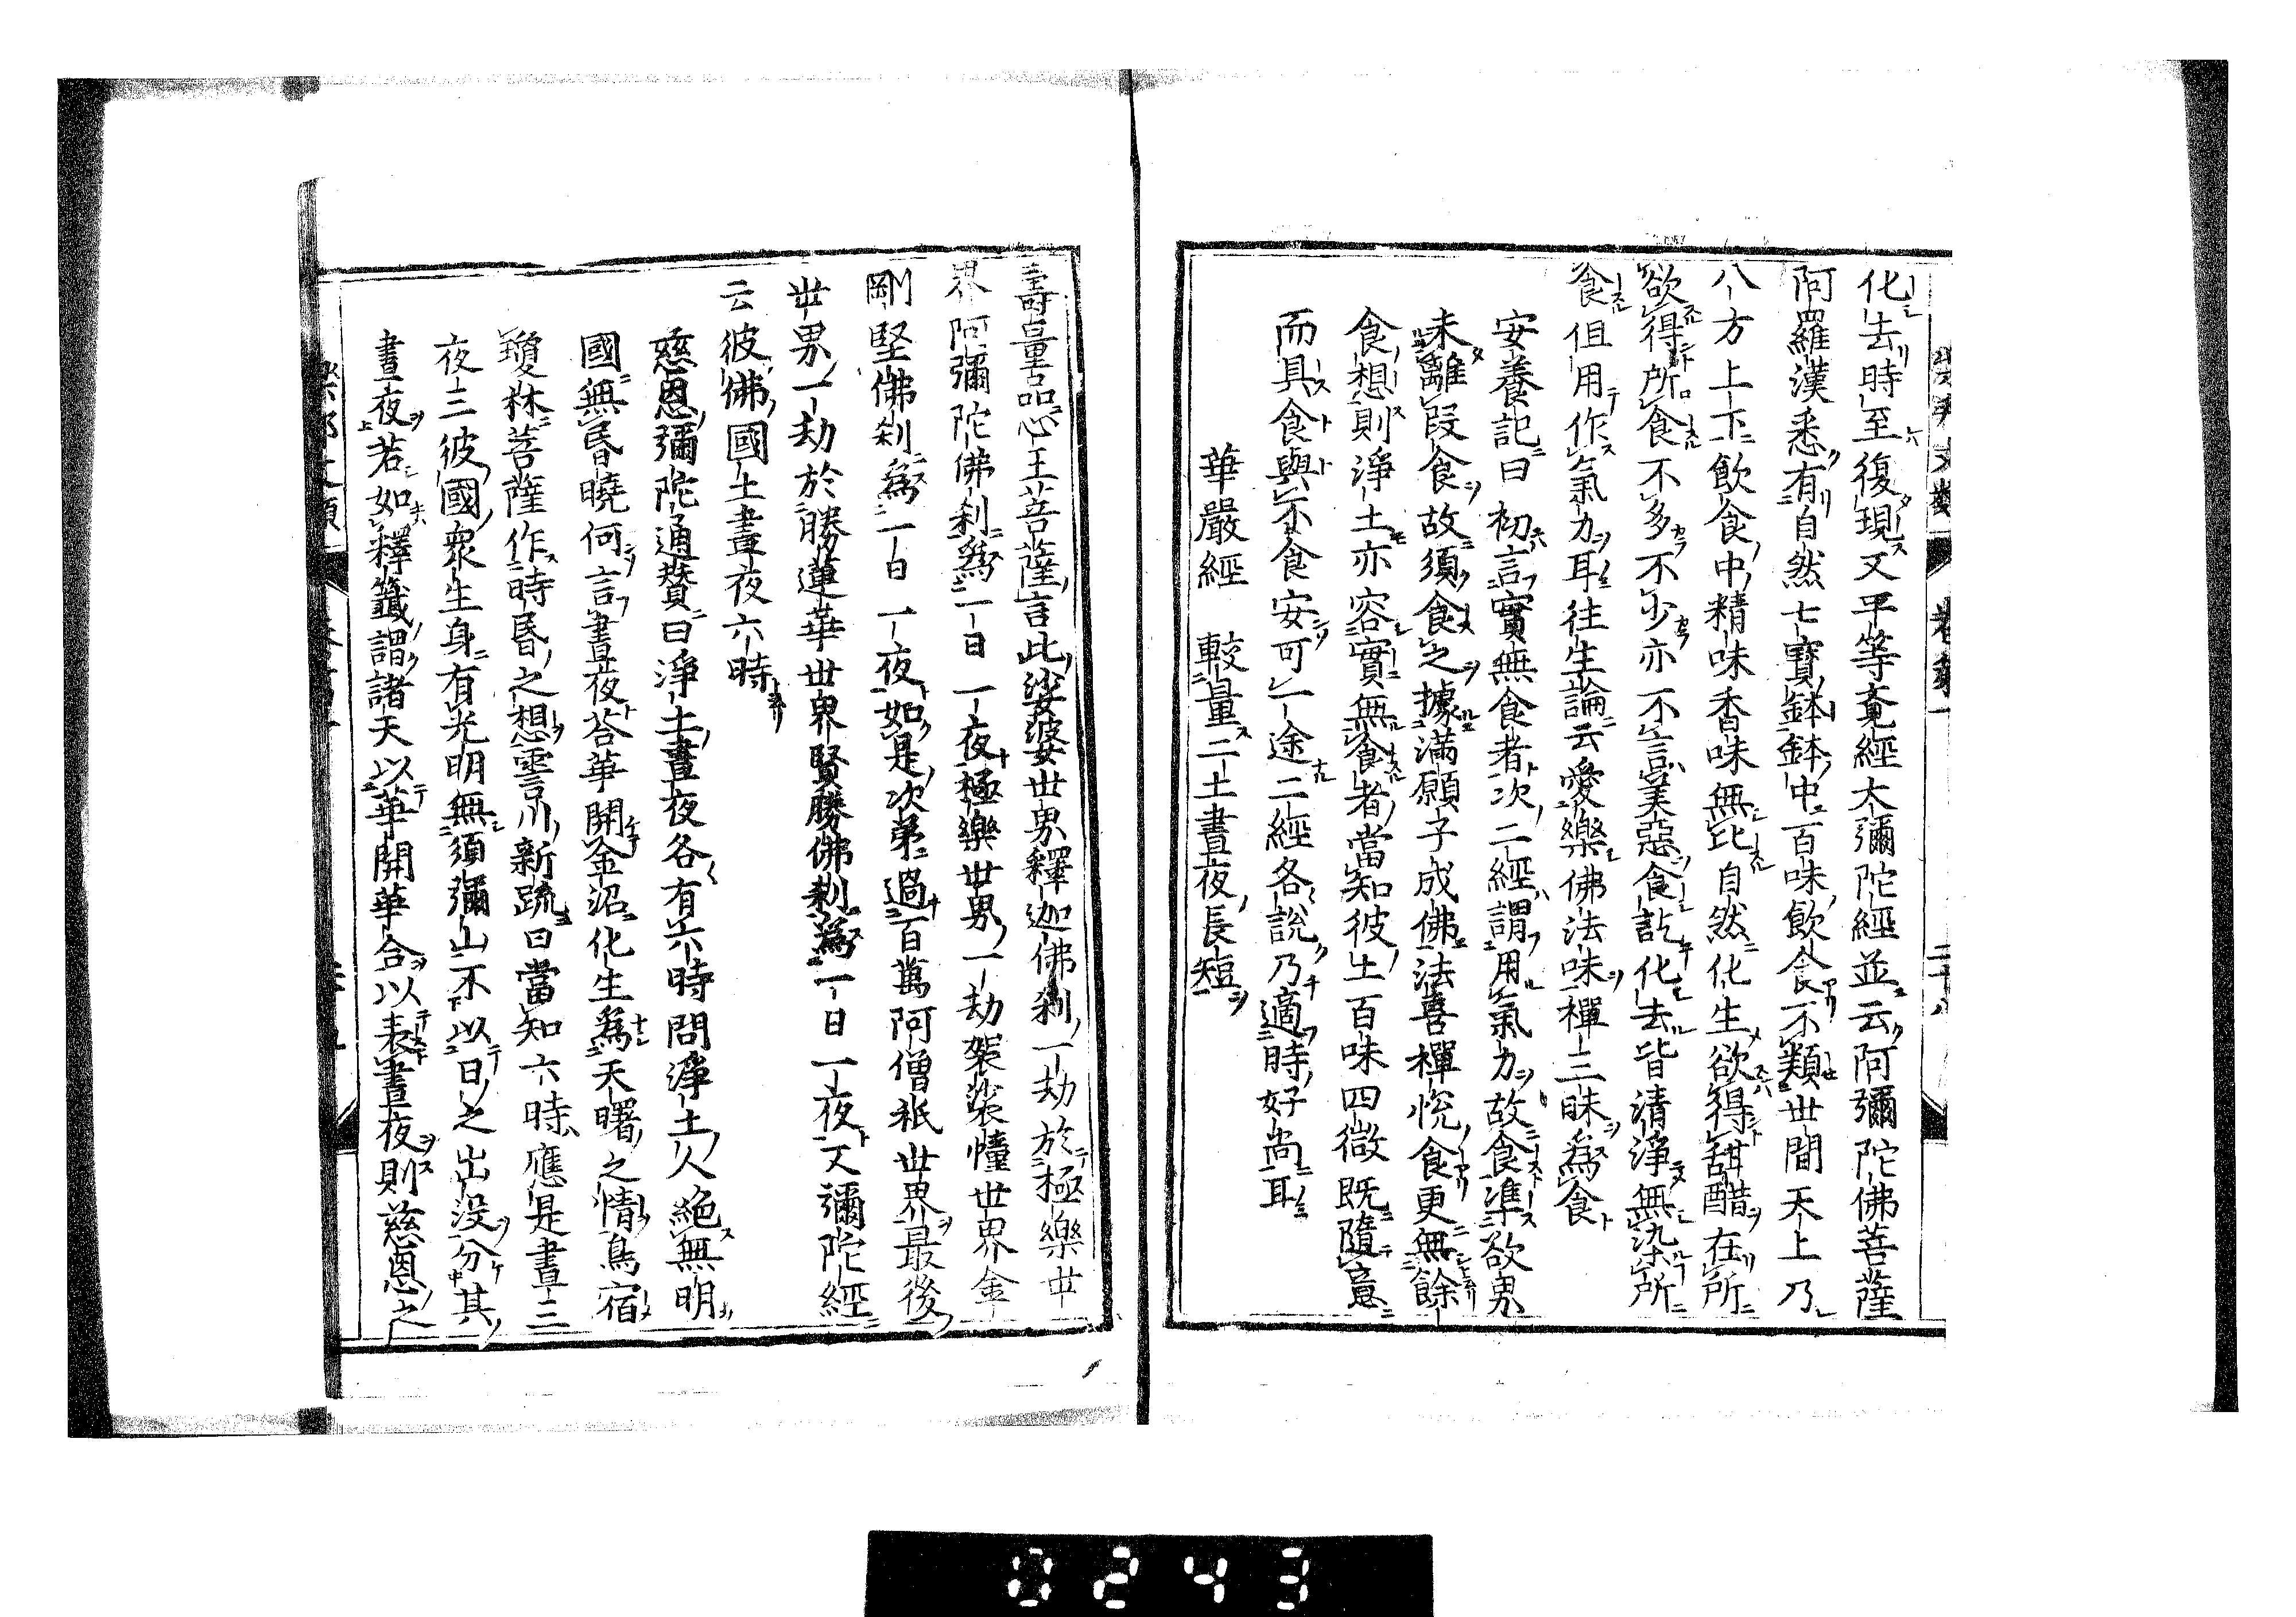 化去時至復現又平等竟經大彌陀經並云阿彌陀佛菩薩
阿羅漢悉有自然七寶鉢鉢中百味飲食不類世間天上乃
八方上下飲食中精味香味無比自然化生欲得甜醋在所
欲得所食不多不少亦不言美惡食訖化去皆清淨無染所
食但用作氣力耳往生論云愛樂佛法味禪三昧爲食
安養記曰初言實無食者次二經謂用氣力故食準欲界
未離段食故須食之據滿願子成佛法喜禪悅食更無餘
食想則淨土亦容實無食者當知彼土百味四微既隨意
而具食與不食安可一途二經各說乃適時好尚耳
華嚴經　較量二土晝夜長短
二十八
壽量品心王菩薩言此娑婆世界釋迦佛刹一劫於極樂世
界阿彌陀佛刹爲一日一夜極樂世界一劫袈裟幢世界金
剛堅佛刹爲一日一夜如是次第過百萬阿僧祇世界最後
世界一劫於勝蓮華世界賢勝佛刹爲一日一夜又彌陀經
云彼佛國土晝夜六時
慈恩彌陀通贊曰淨土晝夜各有六時問淨土人絶無明
國無昏曉何言晝夜荅華開金沼化生爲天曙之情鳥宿
瓊林菩薩作時昏之想霅川新疏曰當知六時應是晝三
夜三彼國衆生身有光明無須彌山不以日之出没分其
晝夜若如釋籤謂諸天以華開華合以表晝夜則慈恩之